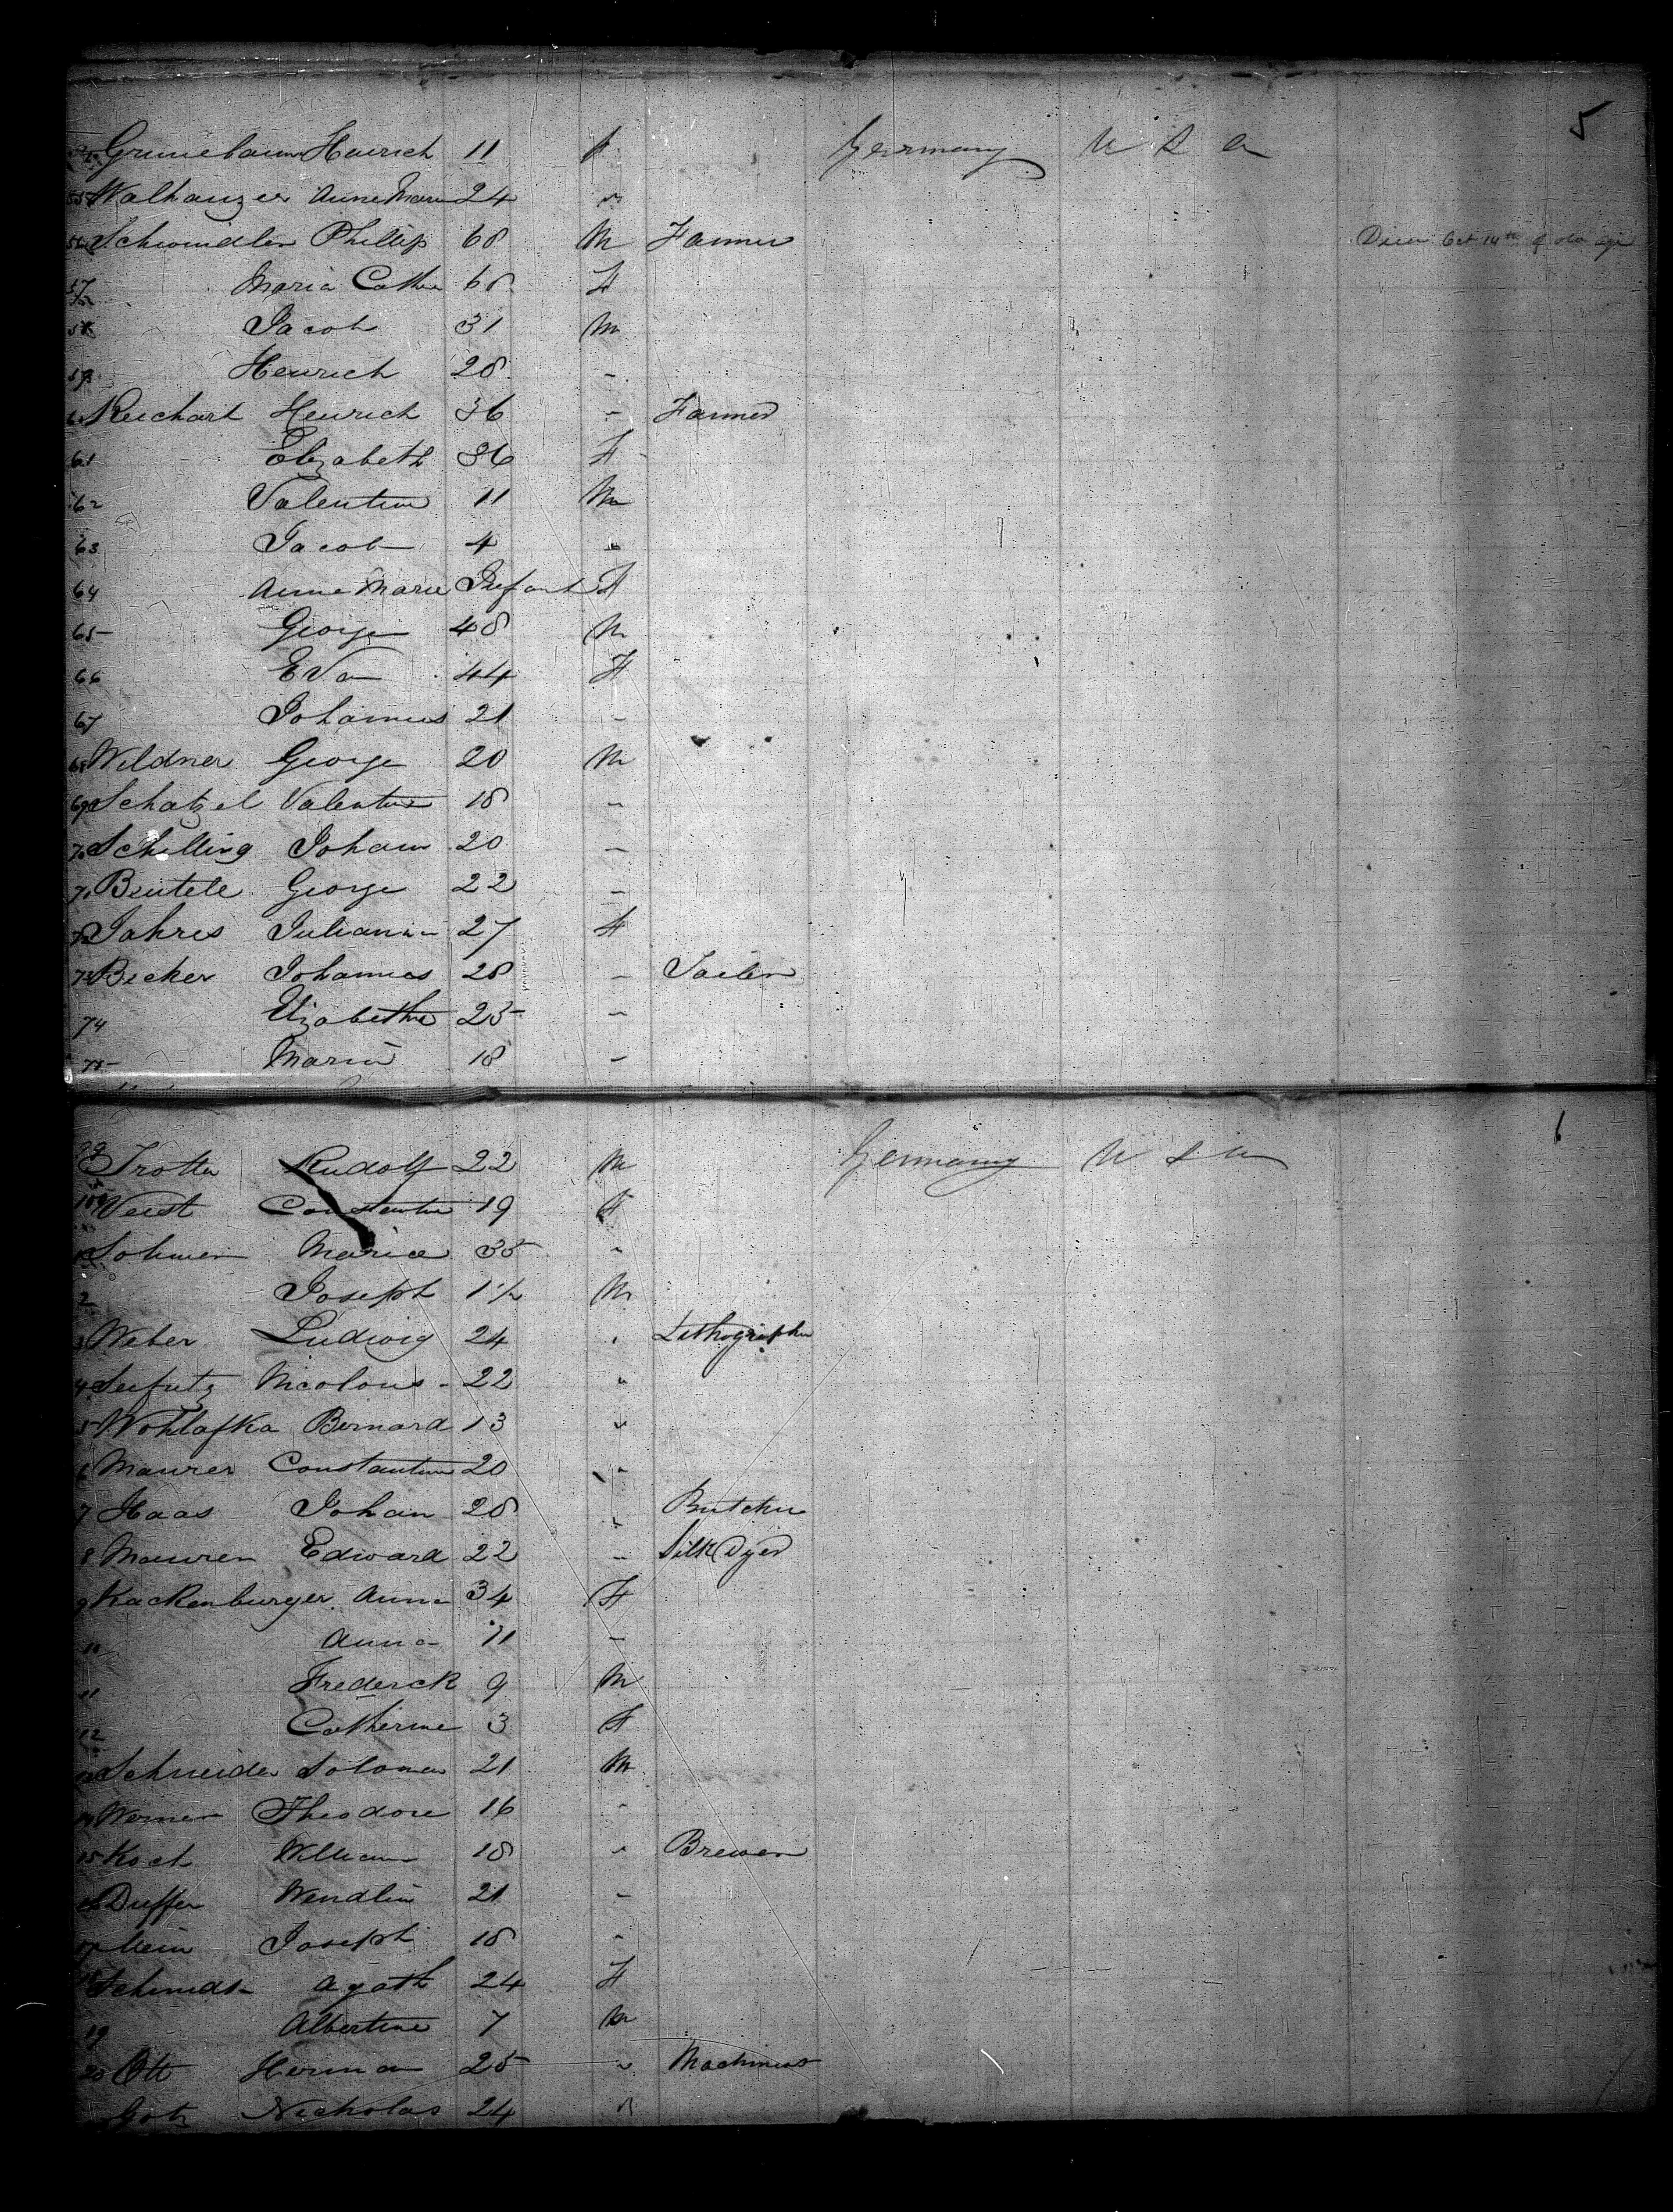 5
54 Grunebaum Heinrich 11 f Germany U S A
55 Walhauzer Anne Marie 24 "
56 Schwindler Phillip 68 M Farmer Died Oct 14th of old age
57 Maria Cathe 68 F
58 Jacob 31 M
59 Heinrich 28 "
6 Reichart Heinrich 36 " Farmer
61 Elizabeth 36 F
62 Valentine 11 M
63 Jacob 4 "
64 Anne Marie Infant F
65 George 48 M
66 Eva 44 F
67 Johannes 21 "
68 Wildner George 20 M
69 Schatzel Valentine 18 "
70 Schilling Johann 20 "
71 Beutele George 22 "
72 Jahres Juliana 27 F
73 Becker Johannes 28 " Tailor
74 Elizabethe 25 "
75 Maria 18 "
6
99 Trotter Rudolf 22 M Germany U S A
100 Veist Constantine 19 F
1 Sohmer Maria 35 "
2 Joseph 1 1/2 M
3 Weber Ludwig 24 " Lithographer
4 Seifritz Nicolous 22 "
5 Wohlafka Bernard 13 "
6 Maurer Constantine 20 "
7 Haas Johan 28 " Butcher
8 Maurer Edward 22 " Silk Dyer
9 Kackenburger Anna 34 F
10 Anna 11 "
11 Frederick 9 M
12 Catherine 3 F
13 Schneider Solomon 21 M
14 Werner Theodore 16 "
15 Koch William 18 " Brewer
16 Duffer Wendlin 21 "
17 Mein Joseph 18 "
18 Schmidt Agath 24 F
19 Albertine 7 M
20 Ott Herman 25 " Machinist
Gotz Nicholas 24 "